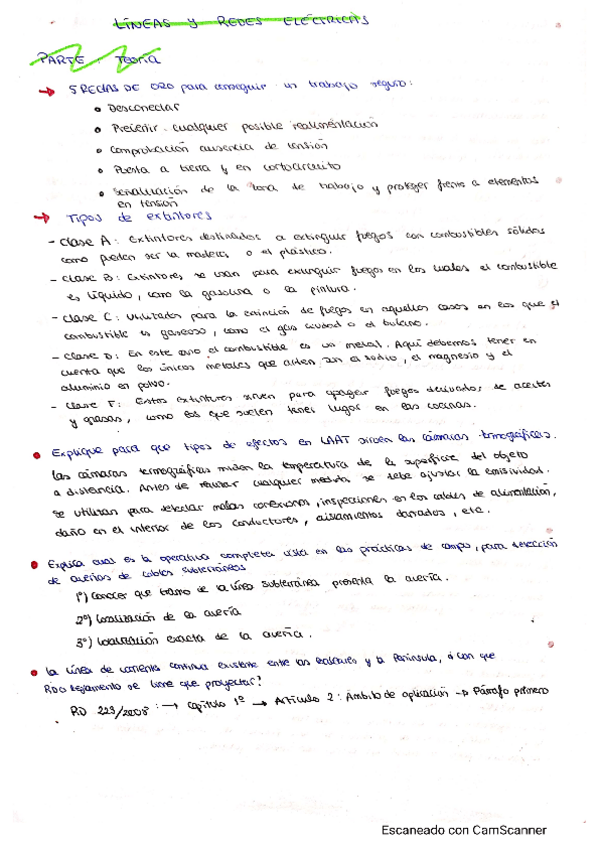 LÍNEAS Y REDES ELÉCTRICAS
PARTE : Teoría
→ 5 REGLAS DE ORO para conseguir un trabajo seguro:
• Desconectar
• Prevenir cualquier posible realimentación
• Comprobación ausencia de tensión
• Puesta a tierra y en cortocircuito
• Señalización de la zona de trabajo y proteger frente a elementos
en tensión
→ Tipos de extintores
- Clase A: Extintores destinados a extinguir fuegos con combustibles sólidos
como pueden ser la madera o el plástico.
- Clase B: Extintores se usan para extinguir fuegos en los cuales el combustible
es líquido, como la gasolina o la pintura.
- Clase C: Utilizados para la extinción de fuegos en aquellos casos en los que el
combustible es gaseoso, como el gas ciudad o el butano.
- Clase D: En este caso el combustible es un metal. Aquí debemos tener en
cuenta que los únicos metales que arden son el sodio, el magnesio y el
aluminio en polvo.
- Clase F: Estos extintores sirven para apagar fuegos derivados de aceites
y grasas, como los que suelen tener lugar en las cocinas.
• Explique para que tipos de efectos en LAAT sirven las cámaras termográficas.
Las cámaras termográficas miden la temperatura de la superficie del objeto
a distancia. Antes de realizar cualquier medida se debe ajustar la emisividad.
se utilizan para detectar malas conexiones, inspecciones en los cables de alimentación,
daño en el interior de los conductores, aislamientos dañados, etc.
• Explica cual es la operativa completa vista en las prácticas de campo, para detección
de averías de cables subterráneos
1º) Conocer que tramo de la línea subterránea presenta la avería.
2º) Localización de la avería
3º) Localización exacta de la avería.
• La línea de corriente continua existente entre las baleares y la Península, ¿con que
Reglamento se tiene que proyectar?
RD 223/2008 : → Capítulo 1º → Artículo 2: Ámbito de aplicación → Párrafo primero
Escaneado con CamScanner